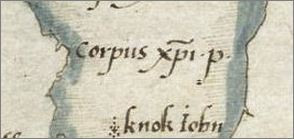 corpus xpi · p ·
knok Iohn